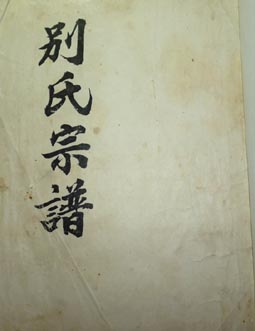 别氏宗譜